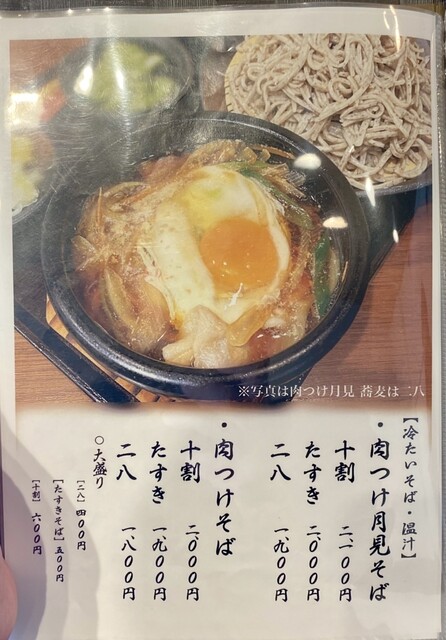 ※写真は肉つけ月見 蕎麦は二八
【冷たいそば・温汁】
・肉つけ月見そば
十割 二、一〇〇円
たすき 二、〇〇〇円
二八 一、九〇〇円
・肉つけそば
十割 二、〇〇〇円
たすき 一、九〇〇円
二八 一、八〇〇円
○大盛り
[二八] 四〇〇円
[たすきそば] 五〇〇円
[十割] 六〇〇円